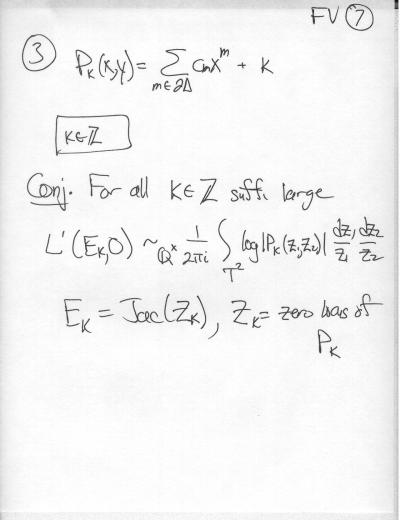 FV ⑦
③ P_K(x,y) = ∑_{m∈∂Δ} c_m x^m + K
K∈ℤ
Conj. For all K∈ℤ suffi. large
L'(E_K,0) ~_{ℚ^×} 1/2πi ∫_{T²} log|P_K(z_1,z_2)| dz_1/z_1 dz_2/z_2
E_K = Jac(Z_K), Z_K = zero locus of
P_K